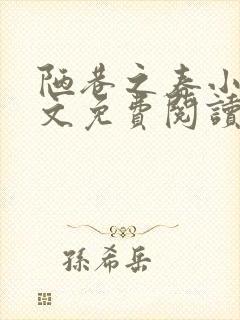 陋巷之春小
文免費閱讀
孫希岳